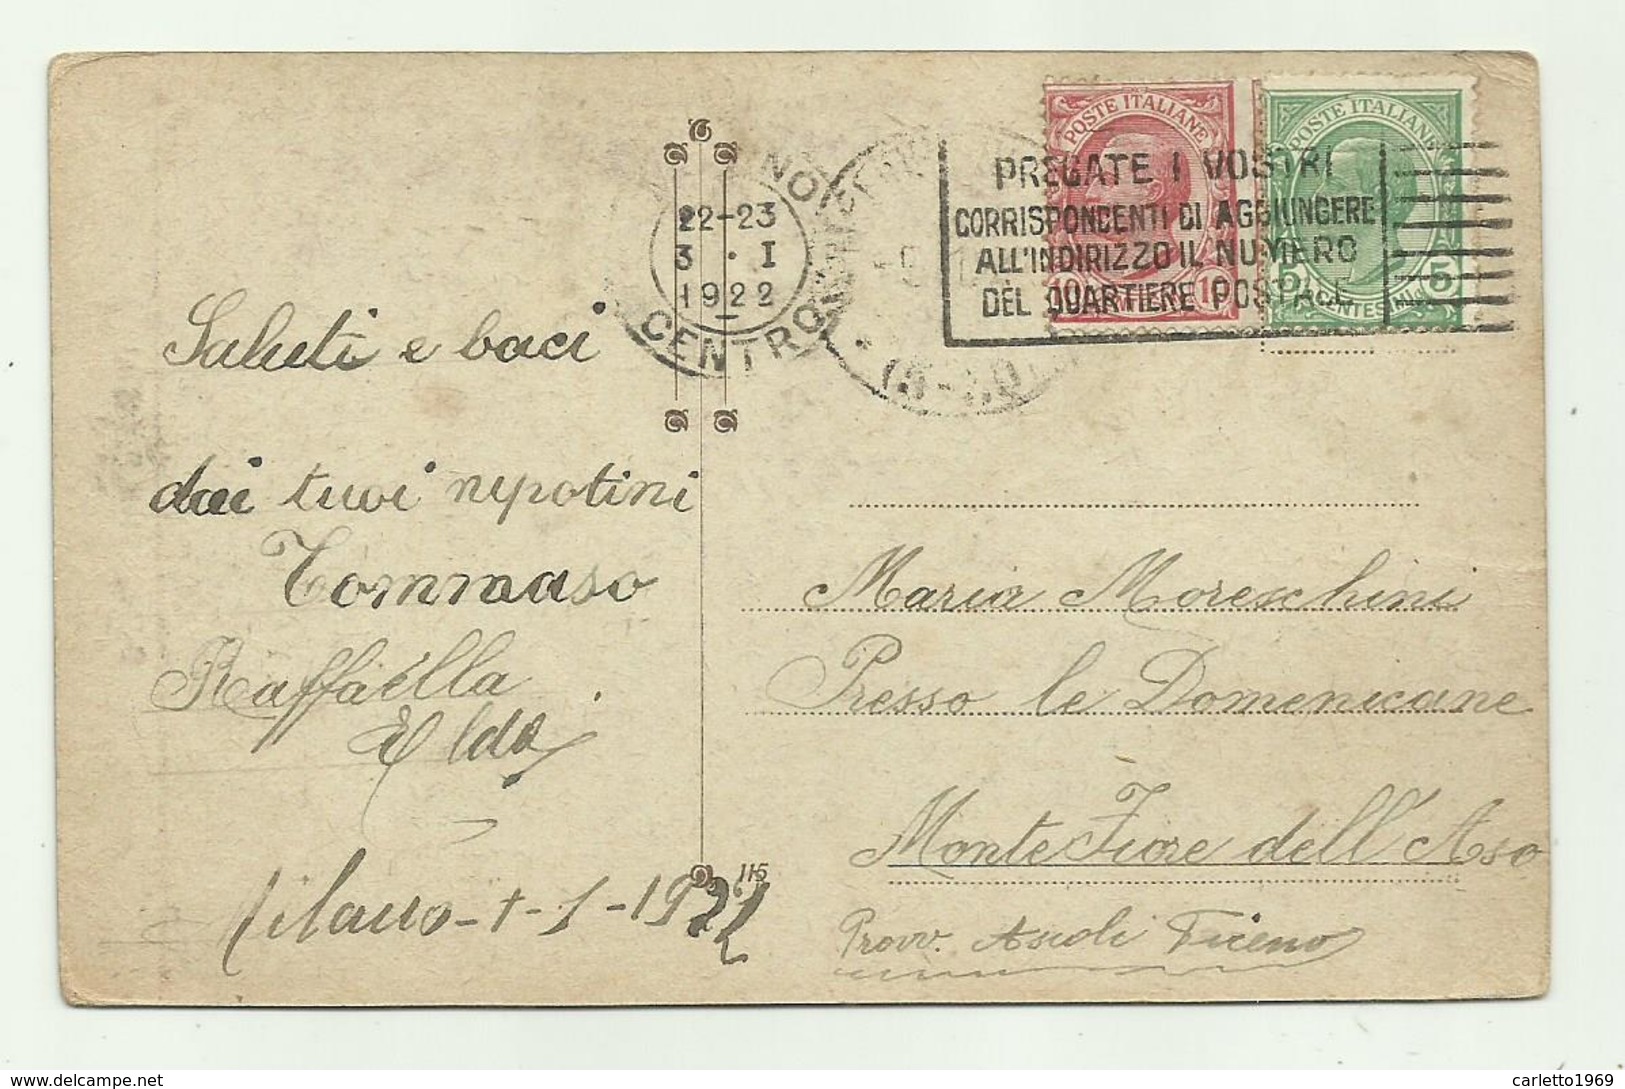 Saluti e baci
dai tuoi nipotini
Tommaso
Raffaella
Elda
Milano - 1 - 1 - 1922
115
CENTRO
22-23
3 · I
1922
PREGATE I VOSTRI
CORRISPONDENTI DI AGGIUNGERE
ALL'INDIRIZZO IL NUMERO
DEL QUARTIERE POSTALE
POSTE ITALIANE
10
POSTE ITALIANE
5 5
Maria Moreschini
Presso le Domenicane
MonteFiore dell'Aso
Prov. Ascoli Piceno
delcampe.net
carletto1969